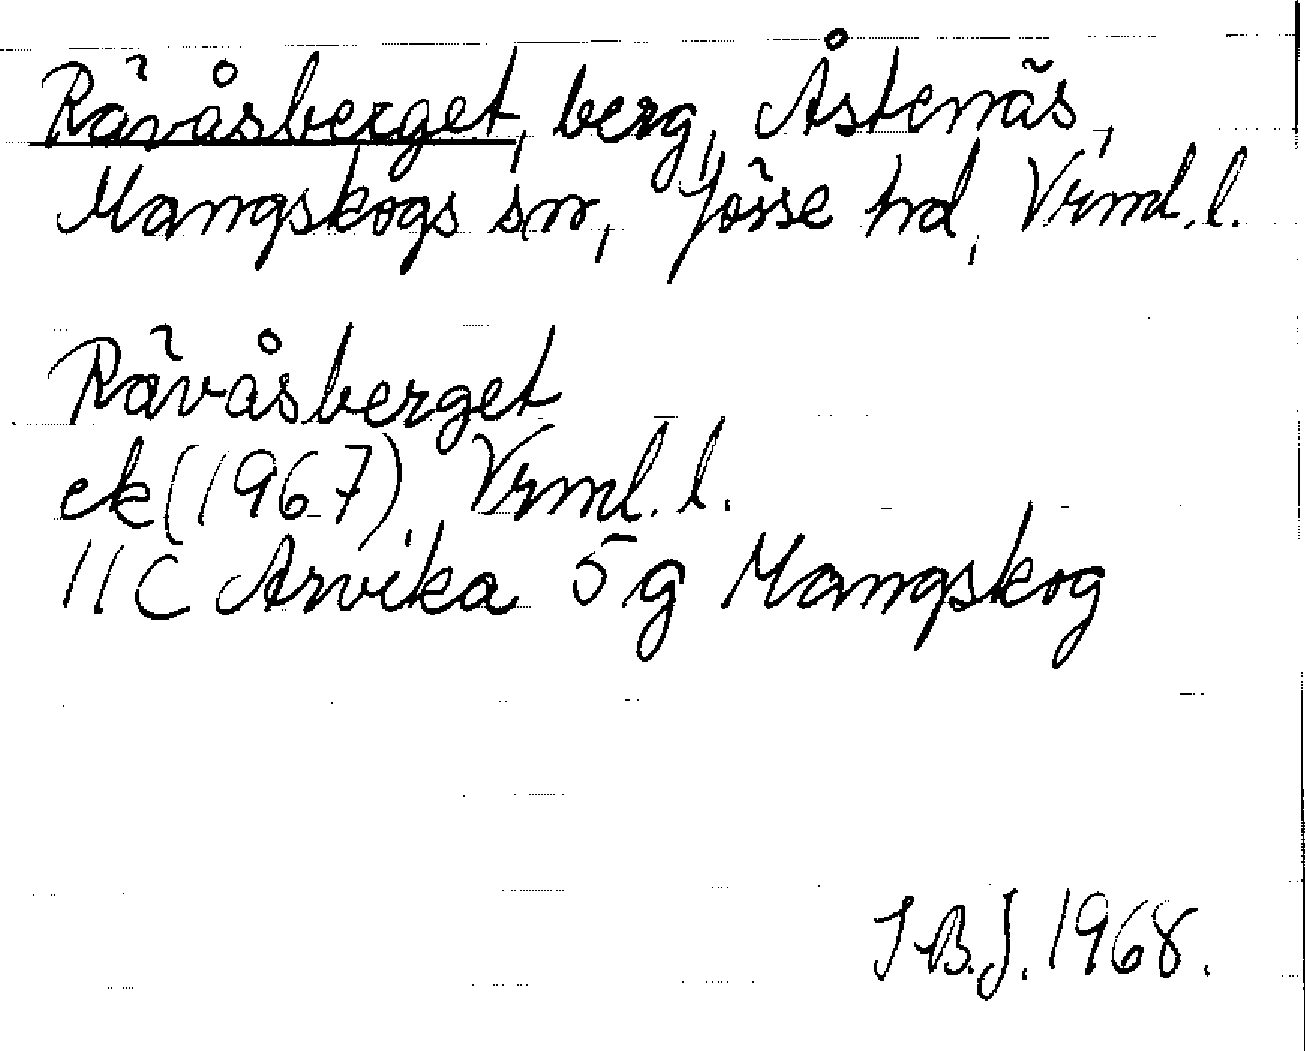 Rävåsberget, berg, Åstenäs,
Mangskogs sn, Jösse hd, Vrml.l.
Rävåsberget
ek (1967), Vrml. l.
11C Arvika 5g Mangskog
I.B.J. 1968.